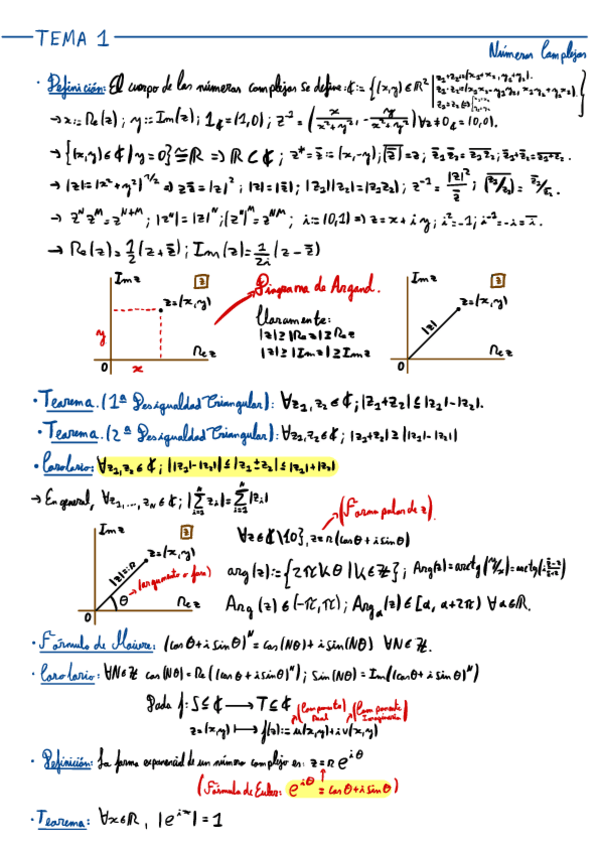 TEMA 1
Números Complejos
· Definición: El cuerpo de los números complejos se define: ℂ := {(x,y) ∈ ℝ² |
→ x := Re(z); y := Im(z); 1_ℂ = (1,0); z⁻¹ = (x/(x²+y²), -y/(x²+y²)) ∀z ≠ 0_ℂ = (0,0).
→ {(x,y) ∈ ℂ | y = 0} ≅ ℝ => ℝ ⊂ ℂ; z* = z̄ := (x,-y);
→ |z| = (x²+y²)^1/2 => z z̄ = |z|²; |z| = |z̄|; |z₁||z₂| = |z₁z₂|; z⁻¹ = |z|²/z̄;
→ z^N z^M = z^(N+M); |z^N| = |z|^N; (z^N)^M = z^(NM); i := (0,1) => z = x + iy; i² = -1; i⁻¹ = -i = ī.
→ Re(z) = 1/2 (z + z̄); Im(z) = 1/2i (z - z̄)
Im z
z
z = (x,y)
y
x
0
Re z
Diagrama de Argand.
Claramente:
|z| ≥ |Re z| ≥ Re z
|z| ≥ |Im z| ≥ Im z
Im z
z
z = (x,y)
|z|
0
Re z
· Teorema. (1ª Desigualdad Triangular): ∀z₁, z₂ ∈ ℂ; |z₁+z₂| ≤ |z₁|-|z₂|.
· Teorema. (2ª Desigualdad Triangular): ∀z₁, z₂ ∈ ℂ; |z₁+z₂| ≥ |z₁|-|z₂||
· Corolario: ∀z₁, z₂ ∈ ℂ; ||z₁|-|z₂|| ≤ |z₁ ± z₂| ≤ |z₁|+|z₂|
→ En general, ∀z₁, ..., z_N ∈ ℂ;
(Forma polar de z).
Im z
z
z = (x,y)
|z| =: R
(argumento o fase)
θ
0
Re z
∀z ∈ ℂ\{0}, z = R(cos θ + i sin θ)
arg(z) := {2πkθ | k ∈ ℤ};
Arg(z) ∈ (-π, π); Arg_α(z) ∈ [α, α+2π) ∀α ∈ ℝ.
· Fórmula de Moivre: (cos θ + i sin θ)^N = cos(Nθ) + i sin(Nθ) ∀N ∈ ℤ.
· Corolario: ∀N ∈ ℤ cos(Nθ) = Re((cos θ + i sin θ)^N); sin(Nθ) = Im((cos θ + i sin θ)^N)
Dada f: S ⊆ ℂ → T ⊆ ℂ
(Componente Real)
(Componente Imaginaria)
z = (x,y) ↦ f(z) := u(x,y) + i v(x,y)
· Definición: La forma exponencial de un número complejo es: z = R e^iθ
(Fórmula de Euler: e^iθ = cos θ + i sin θ)
· Teorema: ∀x ∈ ℝ, |e^ix| = 1